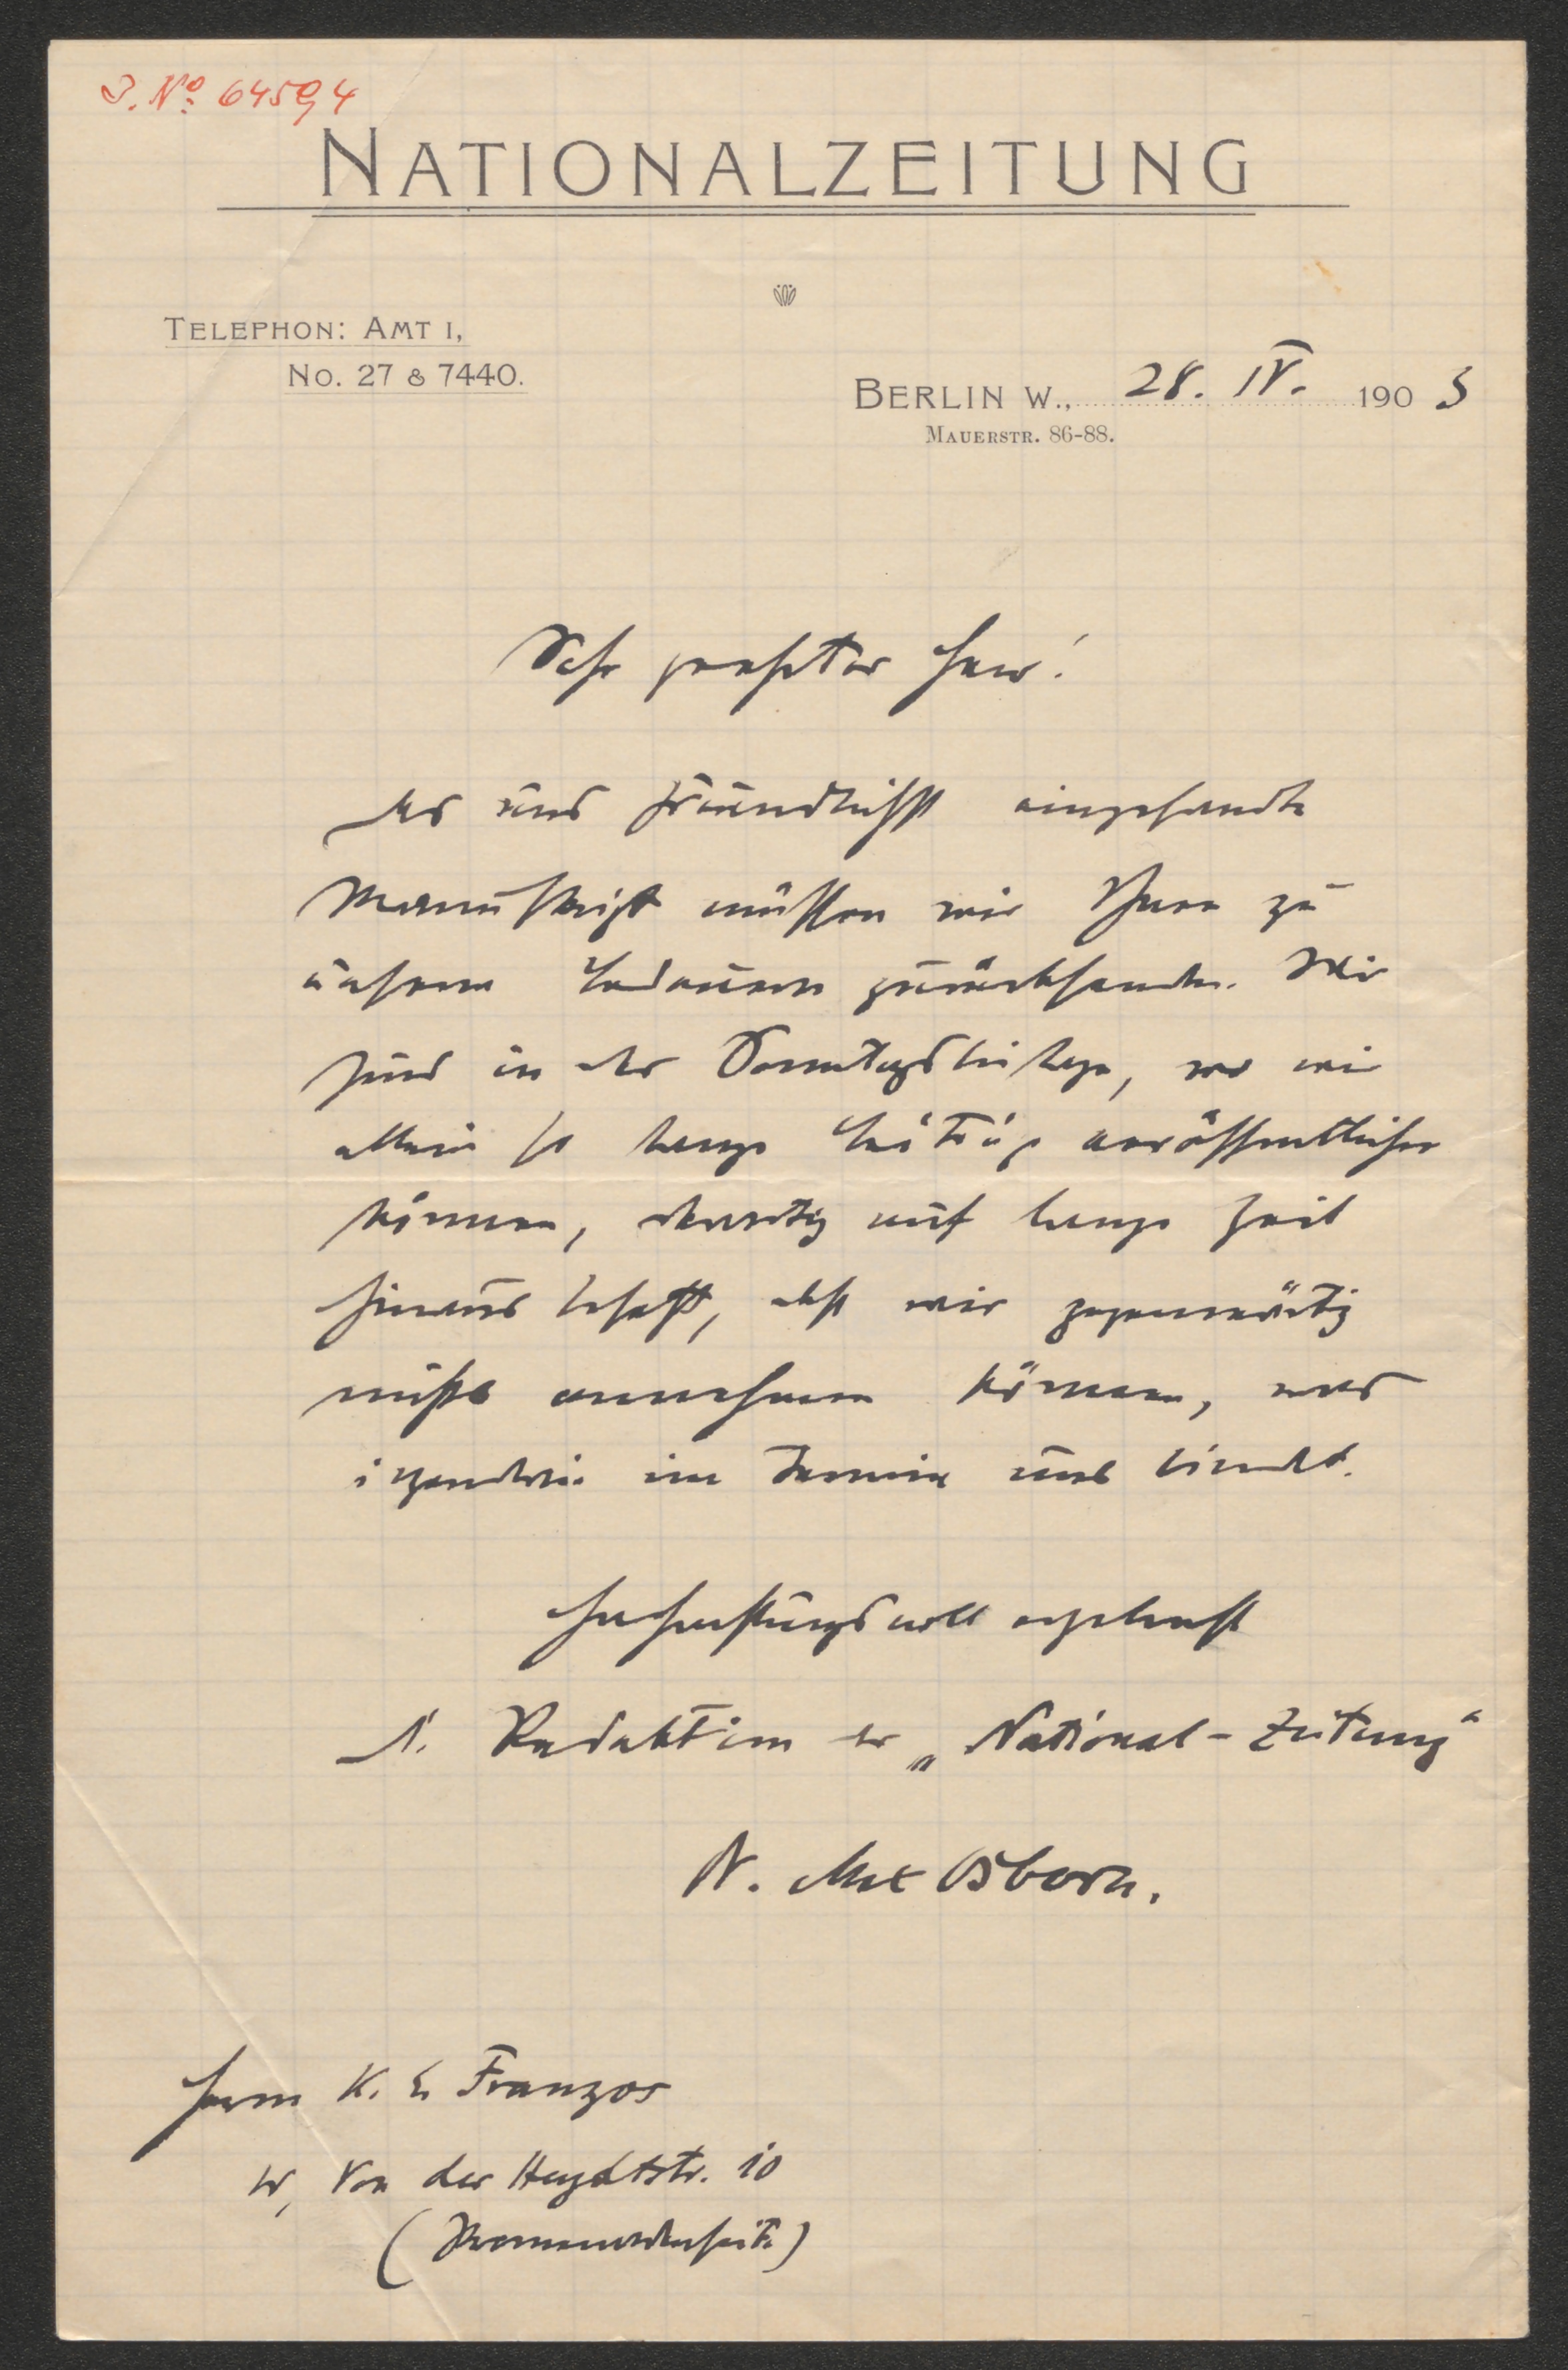 J. Nº 64594
NATIONALZEITUNG
TELEPHON: AMT I,
NO. 27 & 7440.
BERLIN W., 28. IV. 1903
MAUERSTR. 86-88.
Sehr geehrter Herr!
das uns freundlichst eingesandte
Manuskript müssen wir Ihnen zu
unserm Bedauern zurücksenden. Wir
sind in der Sonntagsbeilage, wo wir
allein so lange Beiträge veröffentlichen
können, derartig auf lange Zeit
hinaus besetzt, daß wir gegenwärtig
nichts annehmen können, was
irgendwie im Termin uns bindet.
Hochachtungsvoll ergebenst
d. Redaktion der „National-Zeitung“
Dr. Max Osborn.
Herrn K. E. Franzos
W, Von der Heydtstr. 10
(Promenadenseite)